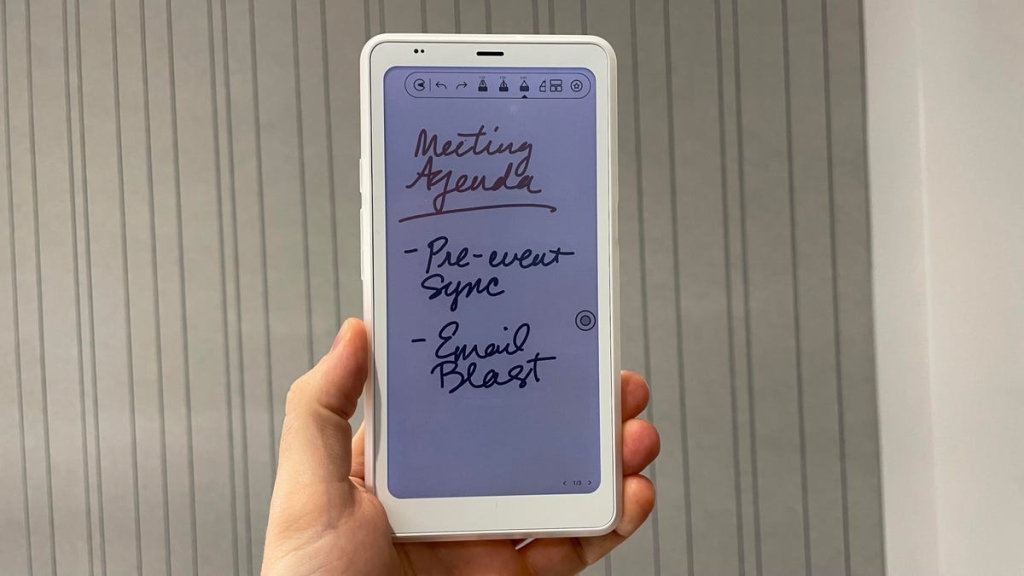 Meeting
Agenda
- Pre-event
Sync
- Email
Blast
< 1/3 >